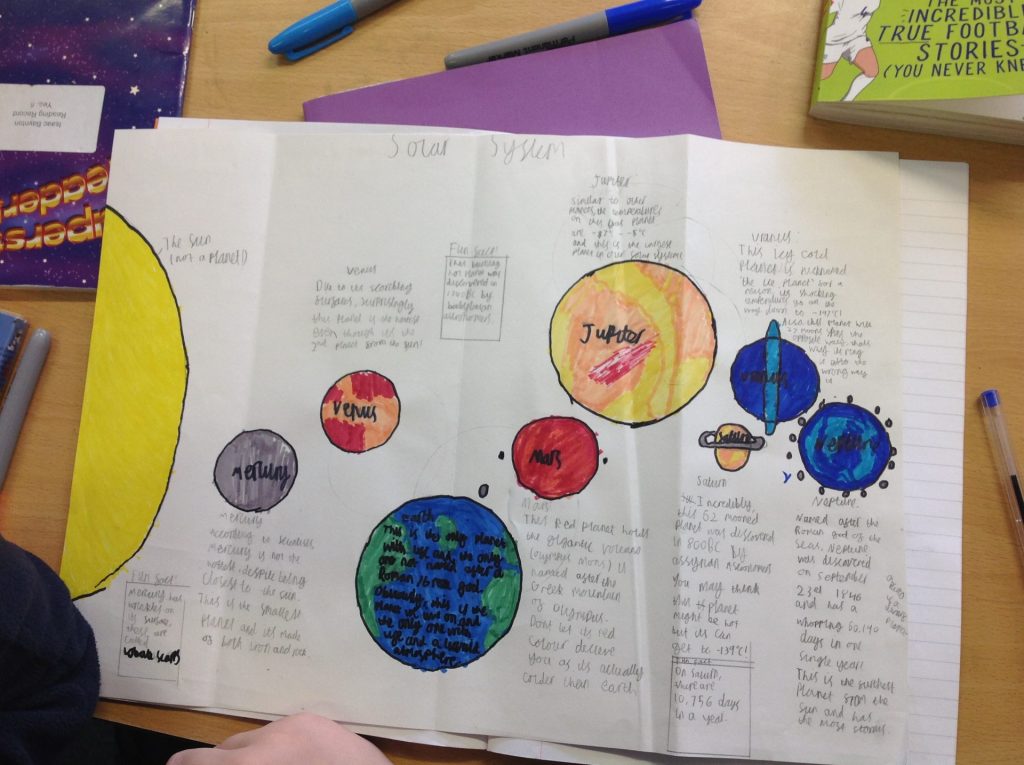 Permanent Marker
THE MOST
INCREDIBLE
TRUE FOOTBALL
STORIES
(YOU NEVER KNEW
Isaac Baynton
Reading Record
Yea. 6
Solar System
The Sun
(not a planet)
Venus
Due to its
surface, surprisingly
this planet is the hottest
even through its the
2nd planet from the sun!
Fun fact!
This
hot planet was
discovered in
by
astronomers.
Jupiter
Similar to other
planets, the temperatures
on this
are
and this is the largest
planet in our solar system
Uranus
This icy cold
planet is nicknamed
'the ice planet' for a
reason, its shocking
go all the
way down to -197°C!
Also, this planet with
27 moons the
opposite way, thats
why its ring
is also the
wrong way
Jupiter
Venus
Mercury
Mars
Uranus
Saturn
Neptune
Mercury
According to scientists
Mercury is not the
hottest despite being
closest to the sun.
This is the smallest
planet and its made
of both iron and rock.
Fun fact!
Mercury has
wrinkles on
its surface,
these are
called
Lobate Scarps
earth
This is the only planet
with life and the only
one not named after a
Roman/Greek god.
Obviously, this is the
planet we live on and
the only one with
life and a
atmosphere
Mars
This Red planet holds
the gigantic volcano
(olympus mons) is
named after the
Greek mountain
of olympus.
Dont let its red
colour deceive
you as its actually
colder than Earth
Saturn
Incredibly,
this 62 mooned
planet was discovered
in 800BC by
assyrian astronomers
You may think
this planet
might be hot
but its can
get to -139°C!
Fun fact
On Saturn,
there are
10,756 days
in a year.
Neptune
Named after the
Roman god of the
seas, Neptune
was discovered
on September
23rd 1846
and has a
whopping 60,190
days in one
single year!
This is the furthest
planet from the
sun and has
the most storms.